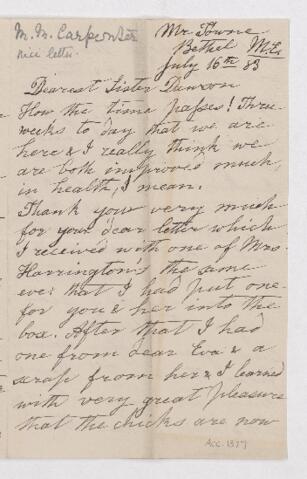 M. M. Carpenter
nice letter.
Mr. Towne
Bethel M.E.
July 16th 83
Dearest Sister Dawson
How the time passes! Three
weeks to day that we are
here & I really think we
are both improved much,
in health, I mean.
Thank you very much
for your dear letter which
I received with one of Mrs.
Harrington's the same
eve: that I had put one
for you & her into the
box. After that I had
one from dear Eva & a
scrap from her & I learned
with very great pleasure
that the chicks are now
Acc. 1377